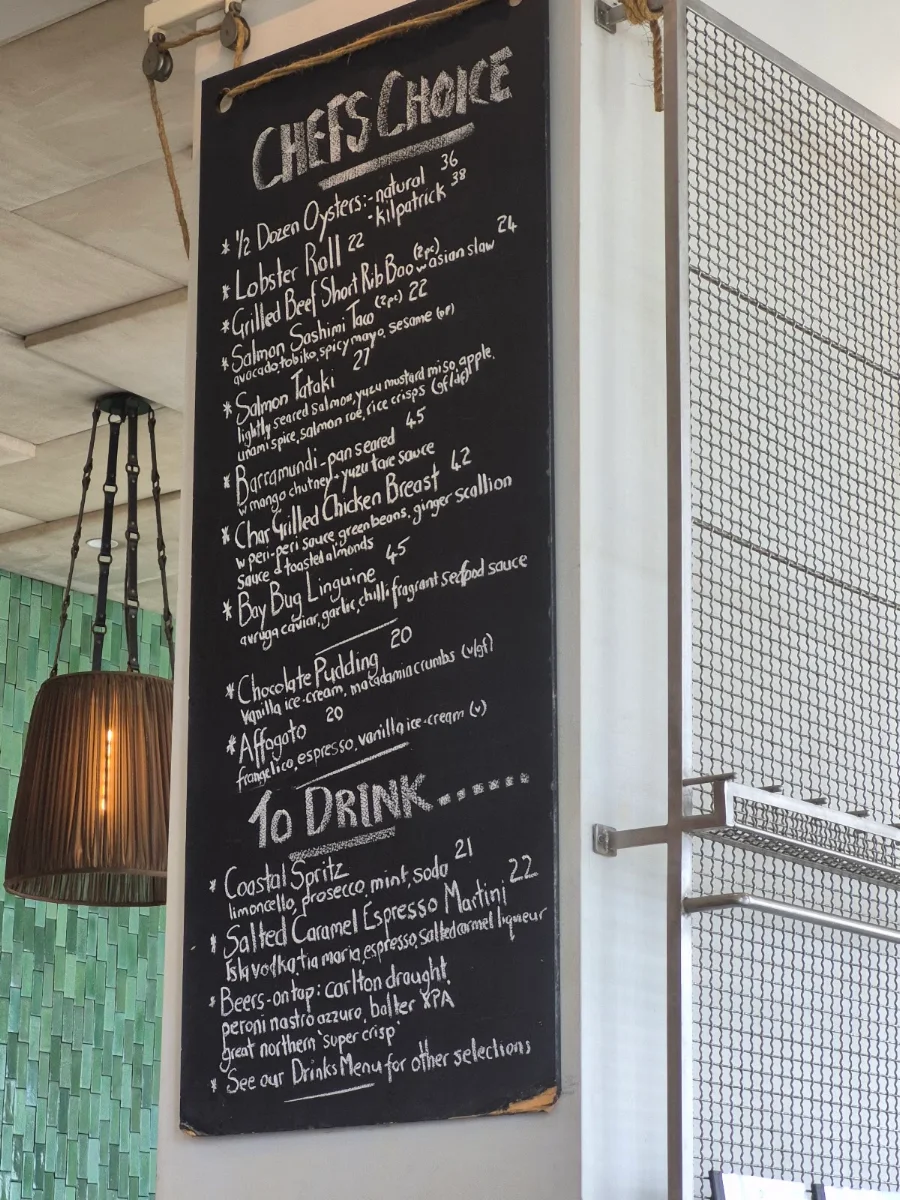 CHEFS CHOICE
* 1/2 Dozen Oysters:-natural 36
-kilpatrick 38
* Lobster Roll 22
* Grilled Beef Short Rib Bao (2pc) w asian slaw 24
* Salmon Sashimi Taco (2pc) 22
avocado tobiko, spicy mayo, sesame (gf)
* Salmon Tataki 27
lightly seared salmon, yuzu mustard miso, apple,
umami spice, salmon roe, rice crisps (gf/df)
* Barramundi - pan seared 45
w mango chutney - yuzu tare sauce
* Char Grilled Chicken Breast 42
w peri-peri sauce, green beans, ginger scallion
sauce & toasted almonds
* Bay Bug Linguine 45
avruga caviar, garlic, chilli fragrant seafood sauce
* Chocolate Pudding 20
vanilla ice-cream, macadamia crumbs (v/gf)
* Affogato 20
frangelico, espresso, vanilla ice-cream (v)
To DRINK.......
* Coastal Spritz 21
limoncello, prosecco, mint, soda
* Salted Caramel Espresso Martini 22
tia maria, espresso, salted carmel liqueur
* Beers-on tap: carlton draught,
peroni nastro azzuro, balter XPA
great northern 'super crisp'
* See our Drinks Menu for other selections